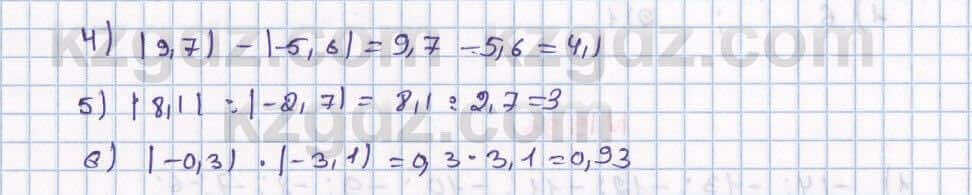 4) |9,7| - |-5,6| = 9,7 - 5,6 = 4,1
5) |8,1| : |-2,7| = 8,1 : 2,7 = 3
6) |-0,3| · |-3,1| = 0,3 · 3,1 = 0,93